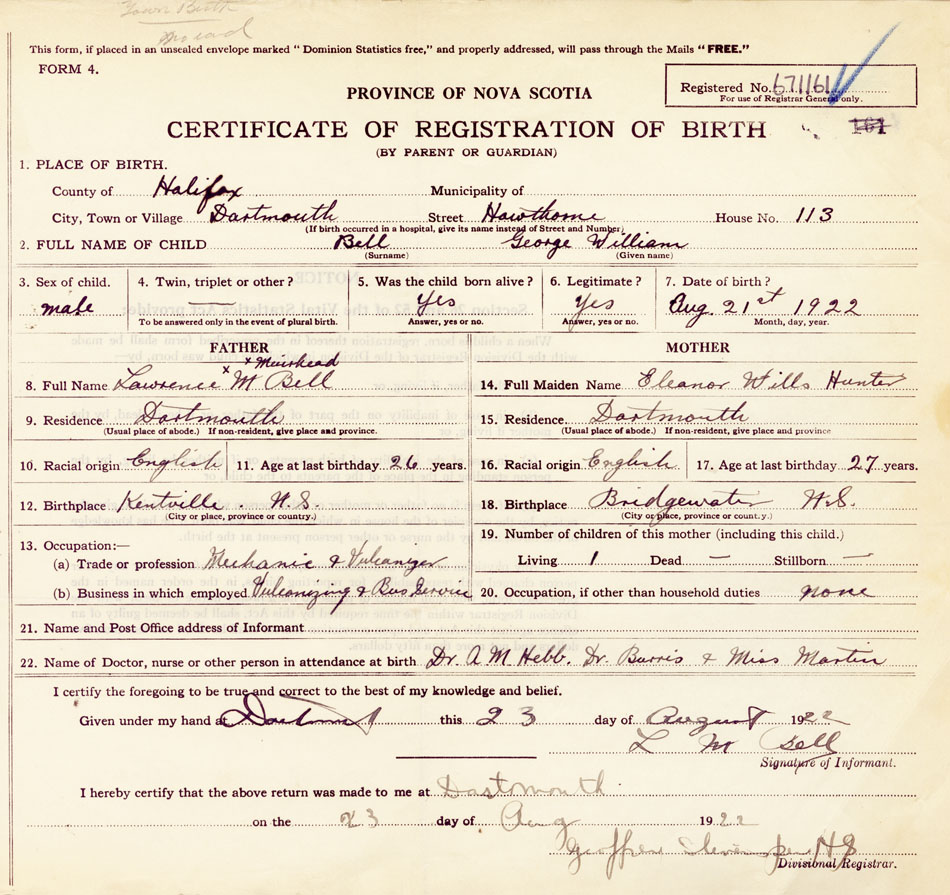 Town Birth
This form, if placed in an unsealed envelope marked "Dominion Statistics free," and properly addressed, will pass through the Mails "FREE."
FORM 4.
Registered No. 671161
For use of Registrar General only.
PROVINCE OF NOVA SCOTIA
CERTIFICATE OF REGISTRATION OF BIRTH 161
(BY PARENT OR GUARDIAN)
1. PLACE OF BIRTH.
County of Halifax Municipality of
City, Town or Village Dartmouth Street Hawthorne House No. 113
(If birth occurred in a hospital, give its name instead of Street and Number)
2. FULL NAME OF CHILD Bell George William
(Surname) (Given name)
3. Sex of child. 4. Twin, triplet or other? 5. Was the child born alive? 6. Legitimate? 7. Date of birth?
male — Yes Yes Aug. 21st 1922
To be answered only in the event of plural birth. Answer, yes or no. Answer, yes or no. Month, day, year.
FATHER MOTHER
x Muirhead
8. Full Name Lawrence x M Bell 14. Full Maiden Name Eleanor Wills Hunter
9. Residence Dartmouth 15. Residence Dartmouth
(Usual place of abode.) If non-resident, give place and province. (Usual place of abode.) If non-resident, give place and province
10. Racial origin English 11. Age at last birthday 26 years. 16. Racial origin English 17. Age at last birthday 27 years.
12. Birthplace Kentville. N.S. 18. Birthplace Bridgewater N.S.
(City or place, province or country.) (City or place, province or country.)
19. Number of children of this mother (including this child.)
13. Occupation:—
(a) Trade or profession Mechanic & Vulcanizer Living 1 Dead — Stillborn —
(b) Business in which employed Vulcanizing & Bus Service 20. Occupation, if other than household duties none
21. Name and Post Office address of Informant
22. Name of Doctor, nurse or other person in attendance at birth Dr. A M Hebb. Dr. Burris & Miss Martin
I certify the foregoing to be true and correct to the best of my knowledge and belief.
Given under my hand at Dartmouth this 23 day of August 1922
L M Bell
Signature of Informant.
I hereby certify that the above return was made to me at Dartmouth
on the 23 day of Aug 1922
Divisional Registrar.